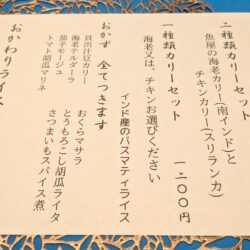 二種類カリーセット
魚屋の海老カリー(南インド)と
チキンカリー(スリランカ)
一種類カリーセット 一二〇〇円
海老又は、チキンお選びください
インド産のバスマティライス
おかず 全てつきます
貝出汁豆カリー
海老テルダーラ
茄子モージュ
トマト胡瓜マリネ
おくらマサラ
とうもろこし胡瓜ライタ
さつまいもスパイス煮
おかわりライス